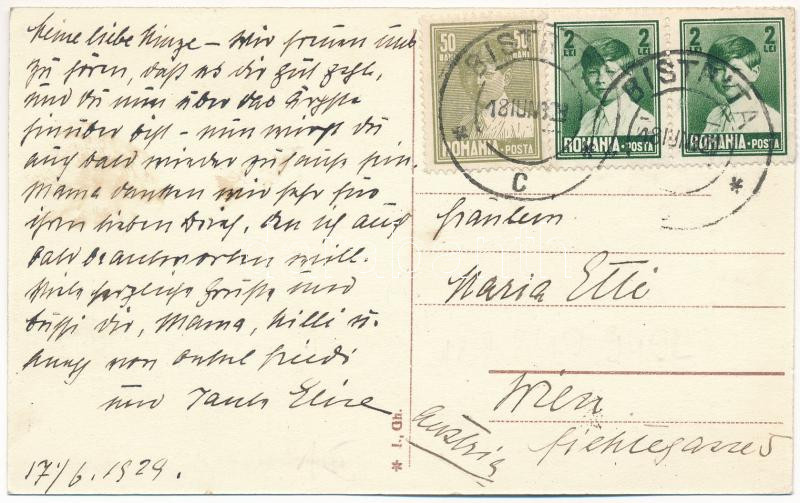 Meine liebe Minze – wir freuen uns
zu hören, daß es dir gut geht,
und du nun über das Ärgste
hinüber bist – nun wirst du
auch bald wieder zu Hause sein.
Mama danken wir sehr für
ihren lieben Brief, den ich auch
bald beantworten will.
Viele herzliche Grüße und
Bussi dir, Mama, Willi u.
auch von Onkel Friedi
und Tante Elise
17./6. 1929.
50 BANI
50 BANI
ROMANIA·POSTA
2 LEI
2 LEI
ROMANIA·POSTA
2 LEI
2 LEI
ROMANIA·POSTA
BISTRITA
18 IUN 929
C
BISTRITA
18 IUN
Fräulein
Maria Etti
Wien
Fichtegasse 5
Austria
* I., Gh.